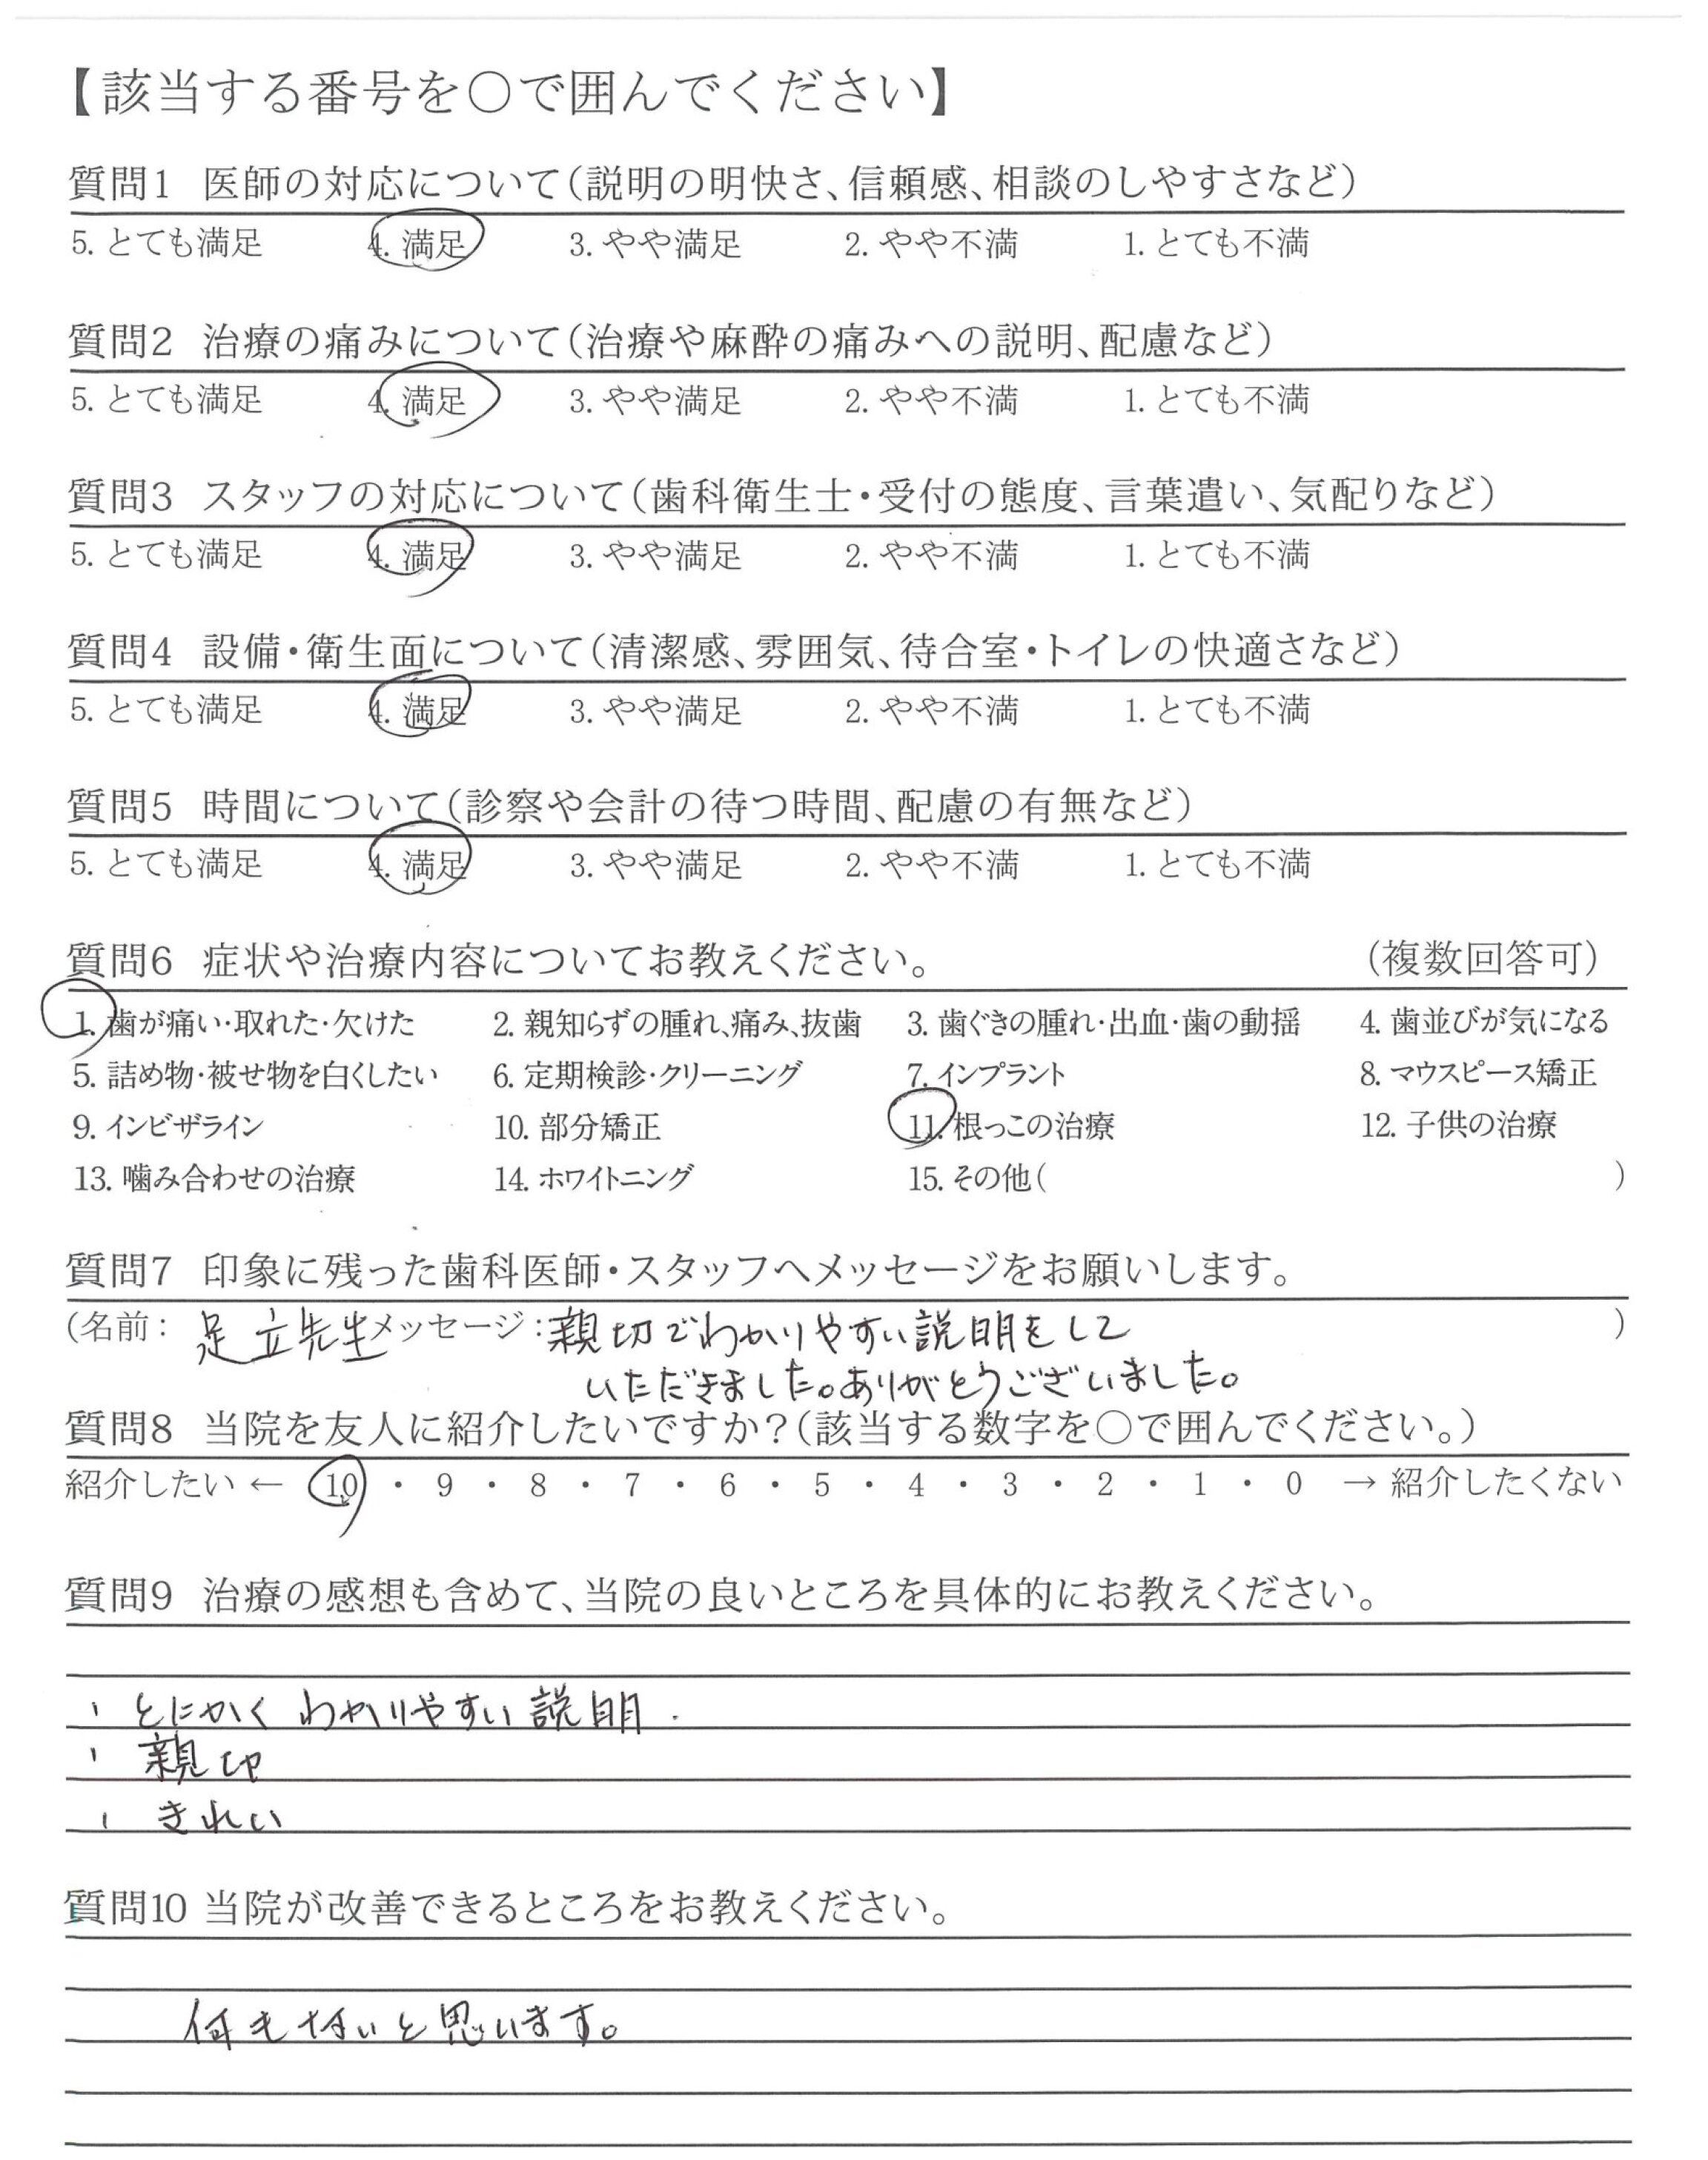 【該当する番号を〇で囲んでください】
質問1 医師の対応について(説明の明快さ、信頼感、相談のしやすさなど)
5. とても満足 4. 満足 3. やや満足 2. やや不満 1. とても不満
質問2 治療の痛みについて(治療や麻酔の痛みへの説明、配慮など)
5. とても満足 4. 満足 3. やや満足 2. やや不満 1. とても不満
質問3 スタッフの対応について(歯科衛生士・受付の態度、言葉遣い、気配りなど)
5. とても満足 4. 満足 3. やや満足 2. やや不満 1. とても不満
質問4 設備・衛生面について(清潔感、雰囲気、待合室・トイレの快適さなど)
5. とても満足 4. 満足 3. やや満足 2. やや不満 1. とても不満
質問5 時間について(診察や会計の待つ時間、配慮の有無など)
5. とても満足 4. 満足 3. やや満足 2. やや不満 1. とても不満
質問6 症状や治療内容についてお教えください。 (複数回答可)
1. 歯が痛い・取れた・欠けた 2. 親知らずの腫れ、痛み、抜歯 3. 歯ぐきの腫れ・出血・歯の動揺 4. 歯並びが気になる
5. 詰め物・被せ物を白くしたい 6. 定期検診・クリーニング 7. インプラント 8. マウスピース矯正
9. インビザライン 10. 部分矯正 11. 根っこの治療 12. 子供の治療
13. 噛み合わせの治療 14. ホワイトニング 15. その他( )
質問7 印象に残った歯科医師・スタッフへメッセージをお願いします。
(名前: 足立先生 メッセージ: 親切でわかりやすい説明をして )
いただきました。ありがとうございました。
質問8 当院を友人に紹介したいですか?(該当する数字を〇で囲んでください。)
紹介したい ← 10 ・ 9 ・ 8 ・ 7 ・ 6 ・ 5 ・ 4 ・ 3 ・ 2 ・ 1 ・ 0 → 紹介したくない
質問9 治療の感想も含めて、当院の良いところを具体的にお教えください。
・とにかくわかりやすい説明.
・親切
・きれい
質問10 当院が改善できるところをお教えください。
何もないと思います。